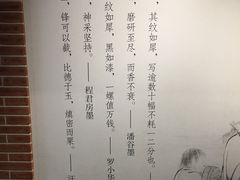 ，其纹如犀，写逾数十幅不耗一二分也。——
磨研至尽，而香不衰。——潘谷墨
纹如犀，黑如漆，一螺值万钱。——罗小华
神采坚持。——程君房墨
，锋可以截，比德于玉，缜密而栗。——汪